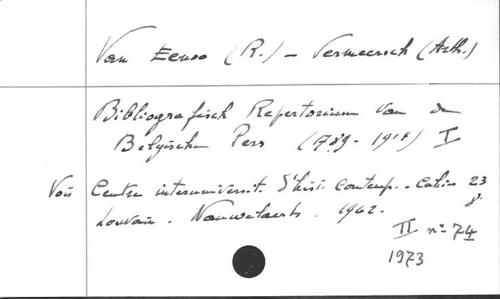 Van Eenoo (R.) - Vermeersch (Arth.)
Bibliografisch Repertorium Van de
Belgische Pers (1789-1914) I
Voir Centre interuniversit. d'hist. contemp. - Cahier 23
Louvain. Nauwelaerts. 1962. 8°
II n° 74
1973